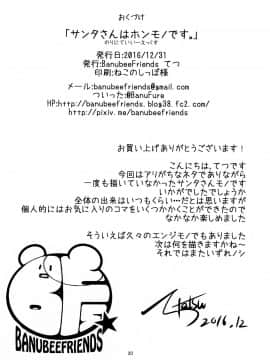 おくづけ
「サンタさんはホンモノです。」
のりにていいーえっくす
発行日:2016/12/31
発行:BanubeeFriends てつ
印刷:ねこのしっぽ様
メール:banubeefriends@gmail.com
ついった:@BanuFure
HP:http://banubeefriends.blog38.fc2.com/
http://pixiv.me/banubeefriends
お買い上げありがとうございます!
こんにちは、てつです
今回はアリがちなネタでありながら
一度も描いていなかったサンタさんモノです
いかがでしたでしょうか
全体の出来はいつもくらい…だとは思いますが
個人的にはお気に入りのコマをいくつかかくことができたので
なかなか楽しめました
そういえば久々のエンジモノでもありました
次は何を描きますかね~
それではまたいずれノシ
BF
BANUBEEFRIENDS
Tetsu
2016.12
30